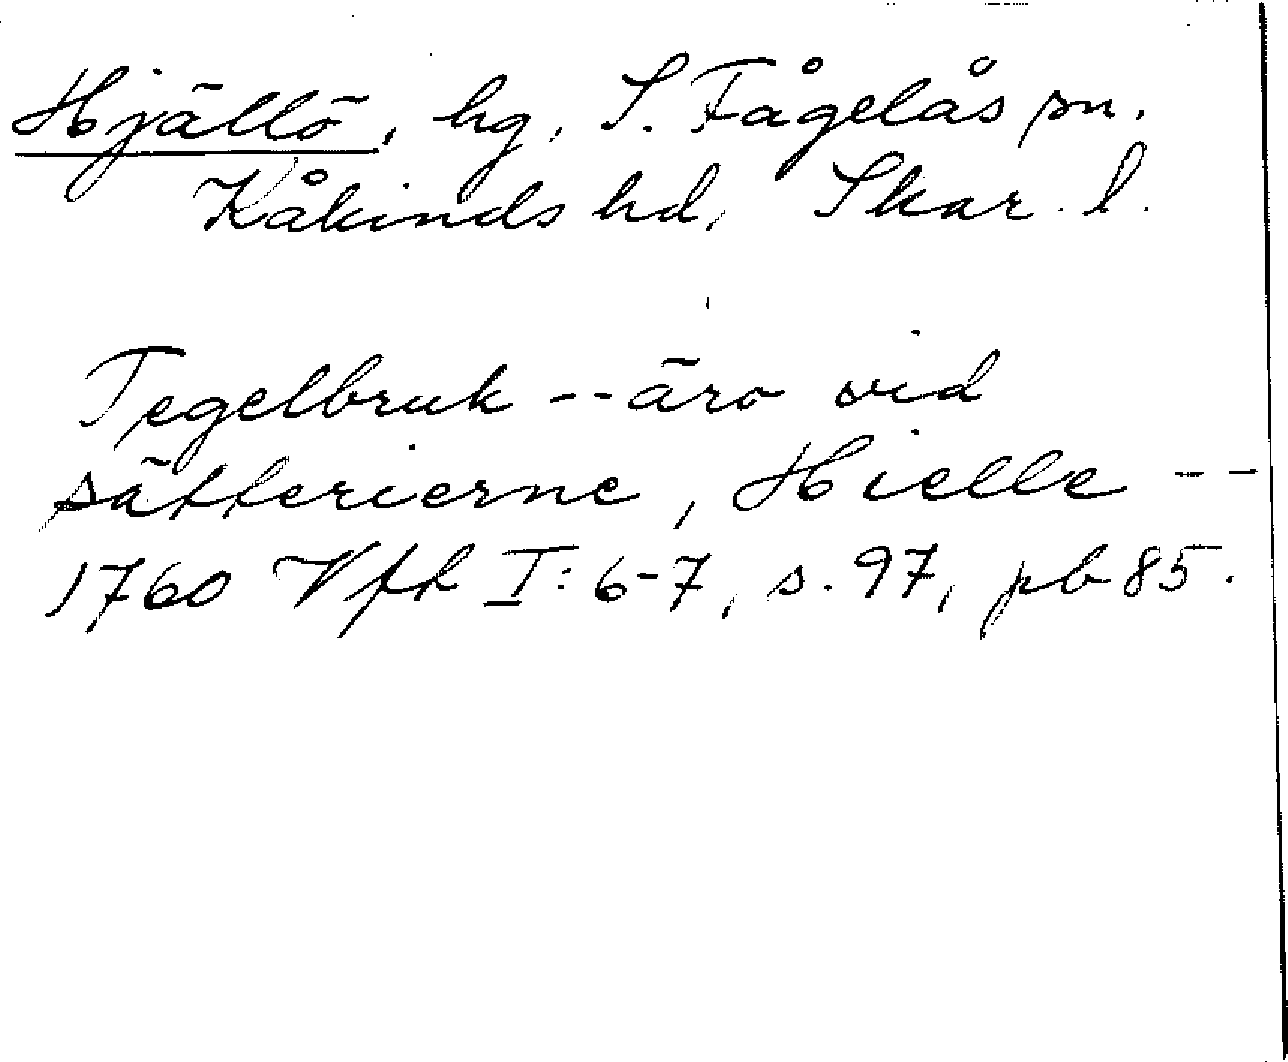 Hjällö, hg, S. Fågelås sn.
Kåkinds hd, Skar. l.
Tegelbruk -- äro vid
sätterierne, Hielle --
1760 Vfh I: 6-7, s. 97, pb 85.